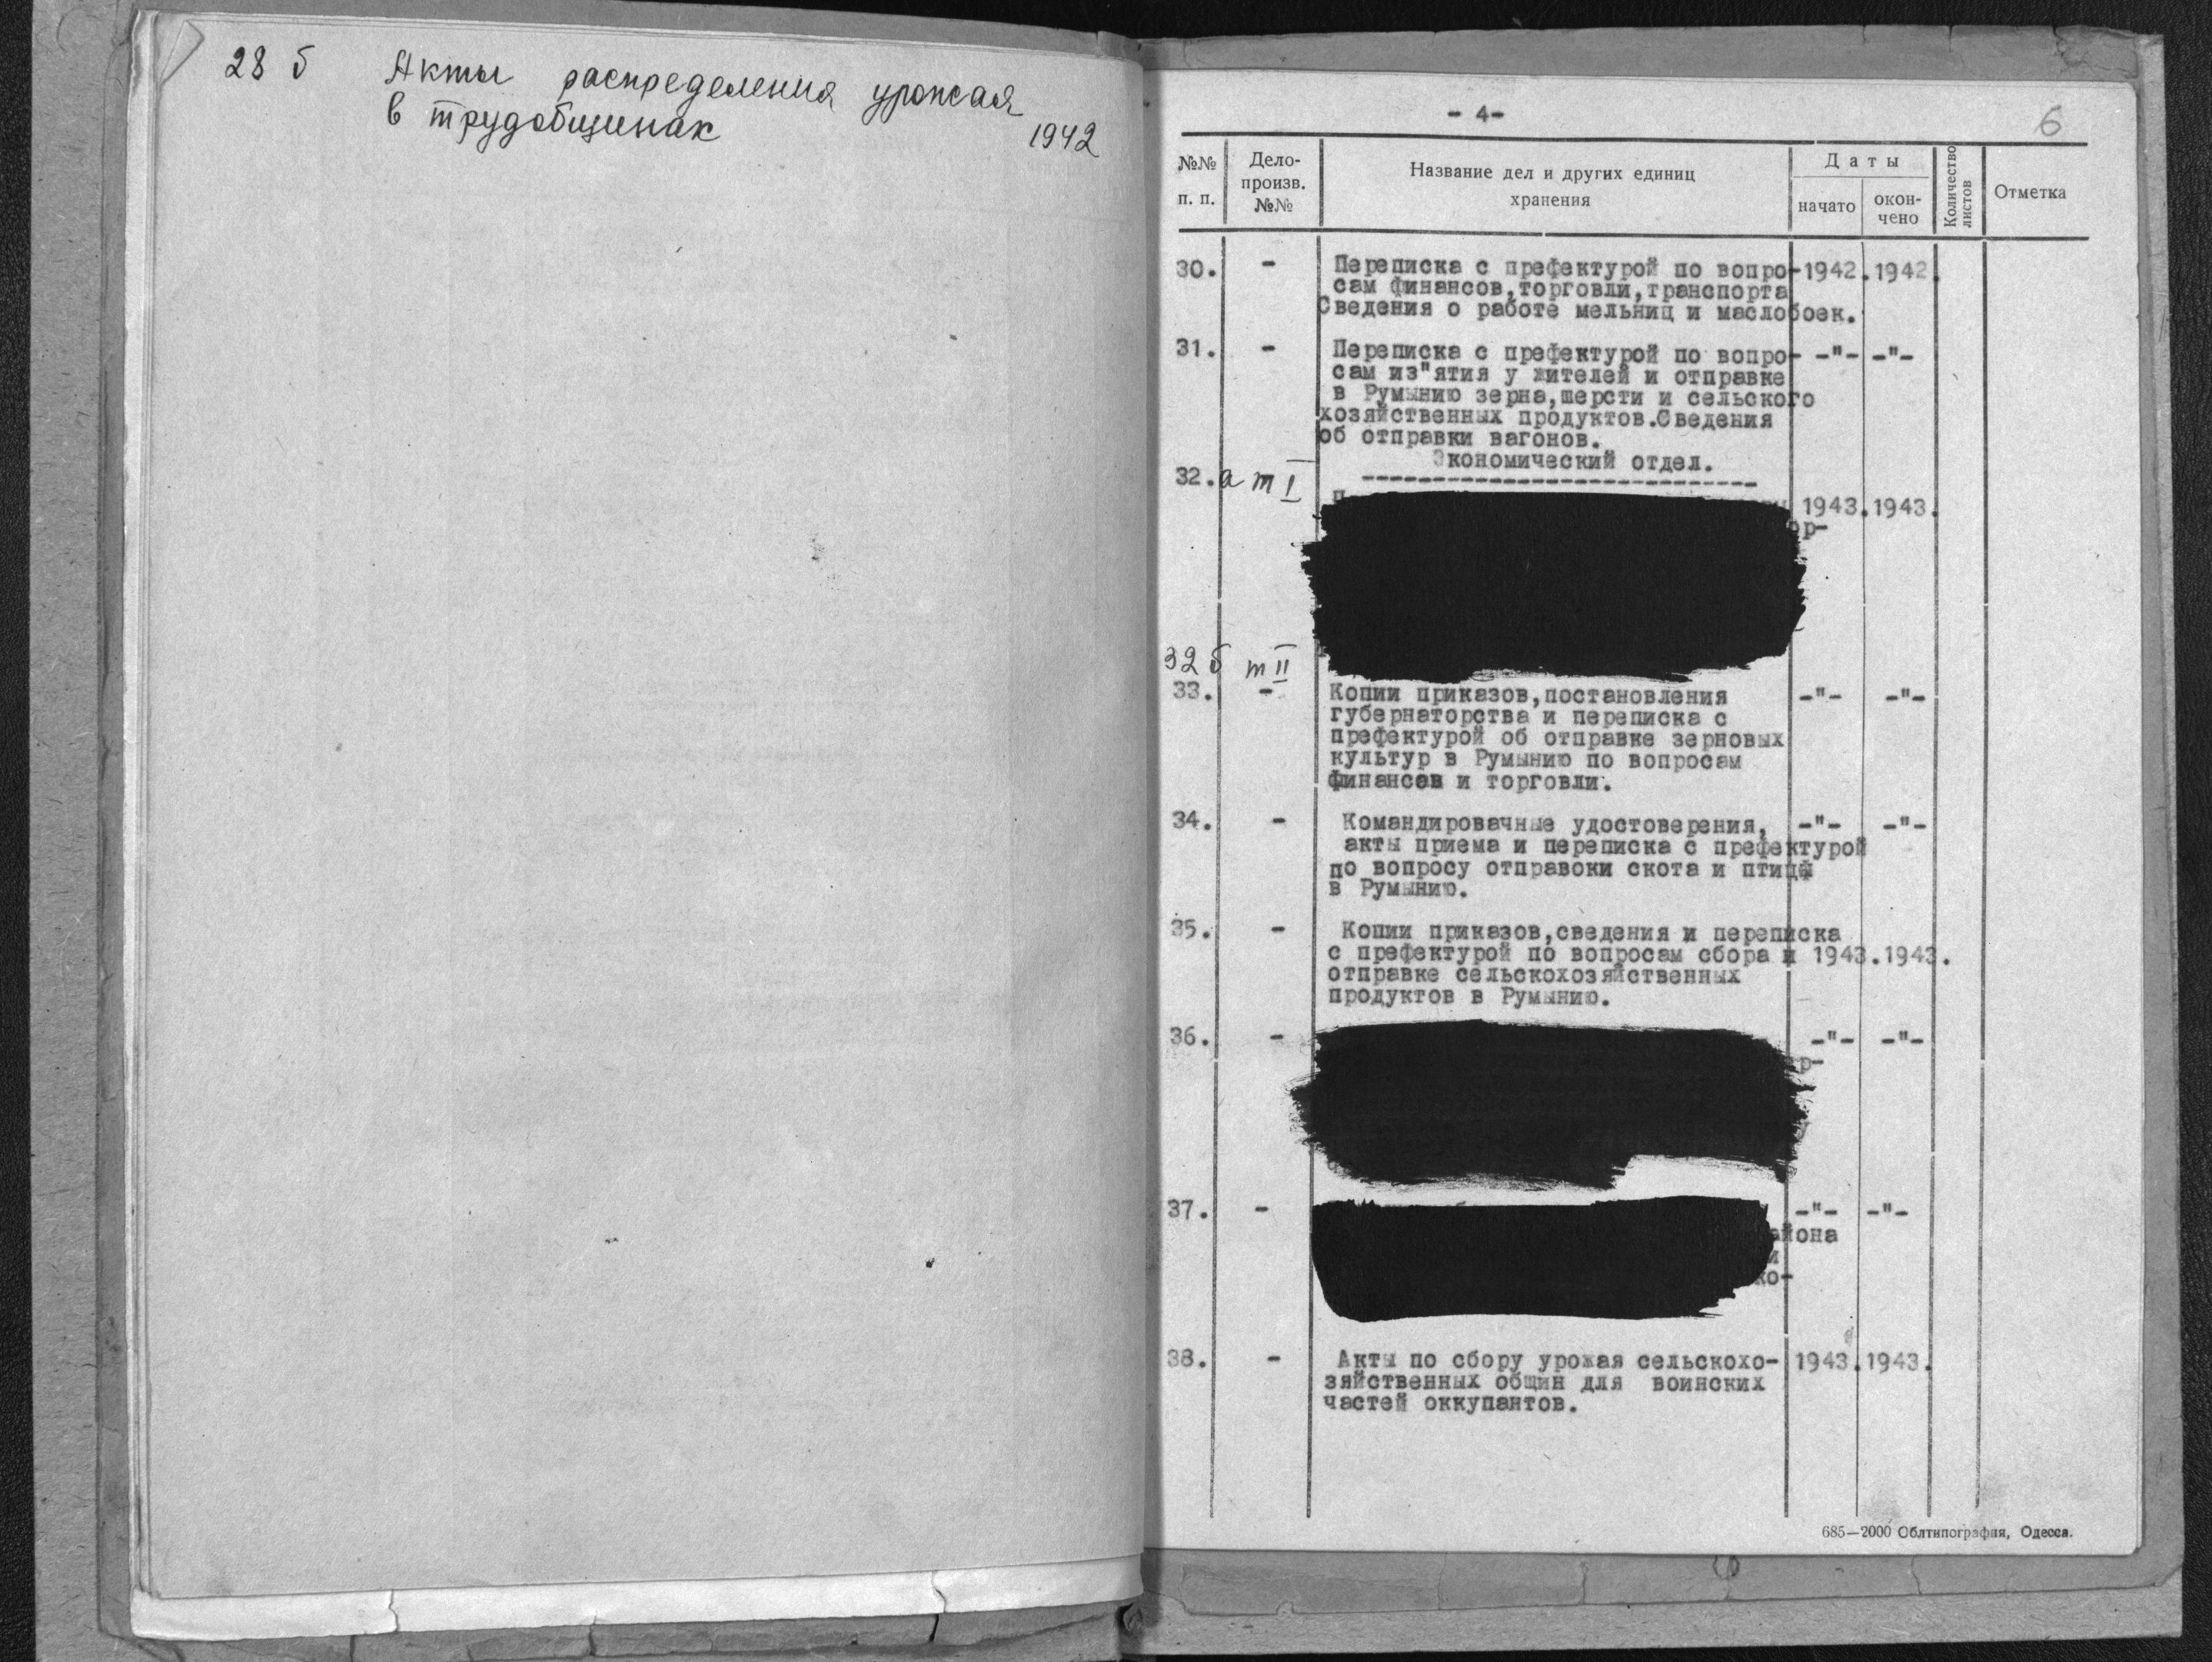 28 б Акты распределения урожая
в трудобщинах
1942
- 4-
6
№№ п. п.
Дело-произв. №№
Название дел и других единиц хранения
Даты
начато
окончено
Количество листов
Отметка
30. - Переписка с префектурой по вопро- 1942. 1942.
сам финансов,торговли,транспорта
Сведения о работе мельниц и маслобоек.
31. - Переписка с префектурой по вопро- -"- -"-
сам из"ятия у жителей и отправке
в Румынию зерна,шерсти и сельского
хозяйственных продуктов.Сведения
об отправки вагонов.
Экономический отдел.
32.а т I
1943. 1943.
ор-
32 б т II
33. - Копии приказов,постановления -"- -"-
губернаторства и переписка с
префектурой об отправке зерновых
культур в Румынию по вопросам
финансов и торговли.
34. - Командировачные удостоверения, -"- -"-
акты приема и переписка с префектурой
по вопросу отправоки скота и птицы
в Румынию.
35. - Копии приказов,сведения и переписка
с префектурой по вопросам сбора и 1943. 1943.
отправке сельскохозяйственных
продуктов в Румынию.
36. - -"- -"-
ар-
37. - -"- -"-
айона
и
ко-
38. - Акты по сбору урожая сельскохо- 1943. 1943.
зяйственных общин для воинских
частей оккупантов.
685—2000 Облтипография, Одесса.